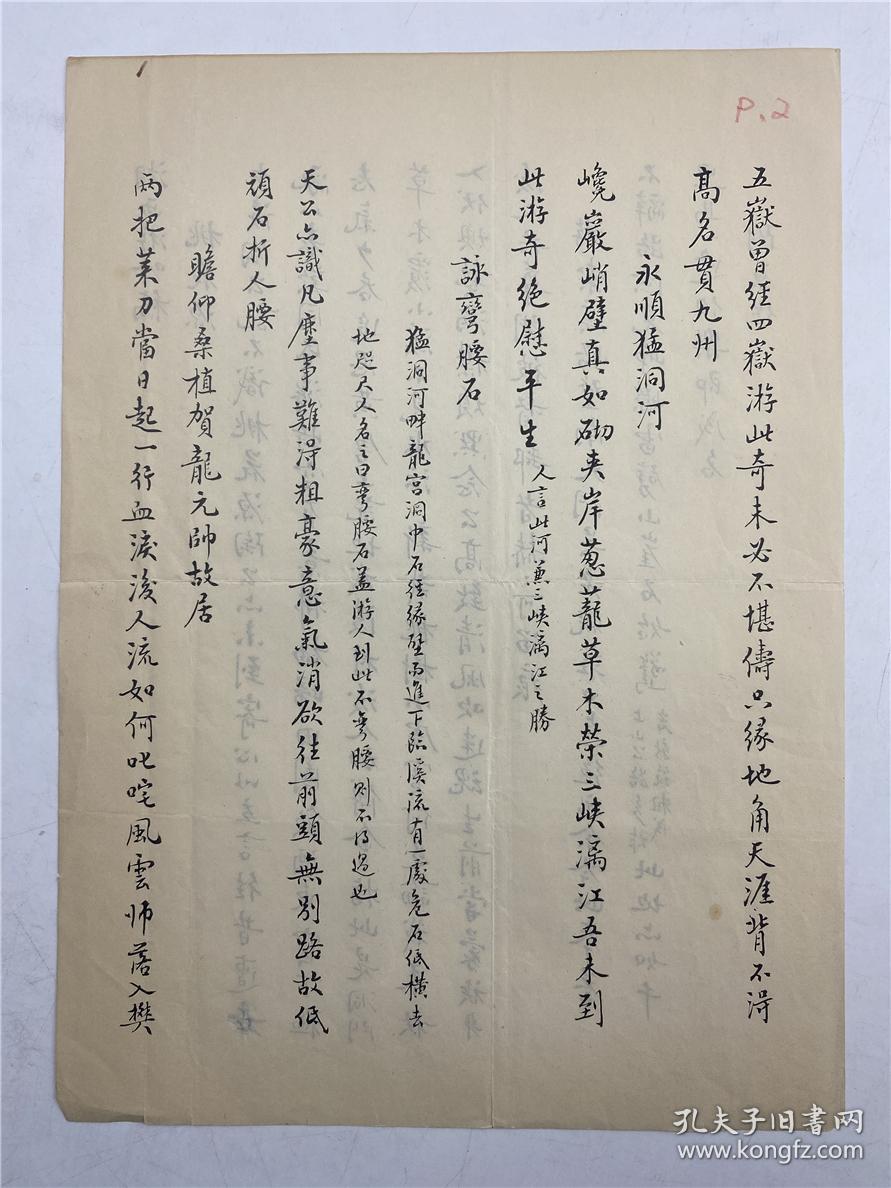 P.2
五嶽曾經四嶽游此奇未必不堪儔只緣地角天涯背不得
高名貫九州
永順猛洞河
巉巖峭壁真如砌夾岸葱蘢草木榮三峽漓江吾未到
此游奇絕慰平生 人言此河兼三峽漓江之勝
詠彎腰石
猛洞河畔龍宮洞中石徑緣壁而進下臨溪流有一處危石低橫去
地咫尺人名之曰彎腰石蓋游人到此不彎腰則不得過也
天公亦識凡塵事難得粗豪意氣消欲往前頭無別路故低
頑石折人腰
瞻仰桑植賀龍元帥故居
兩把菜刀當日起一行血淚後人流如何叱咤風雲帅落入樊
孔夫子旧书网
www.kongfz.com